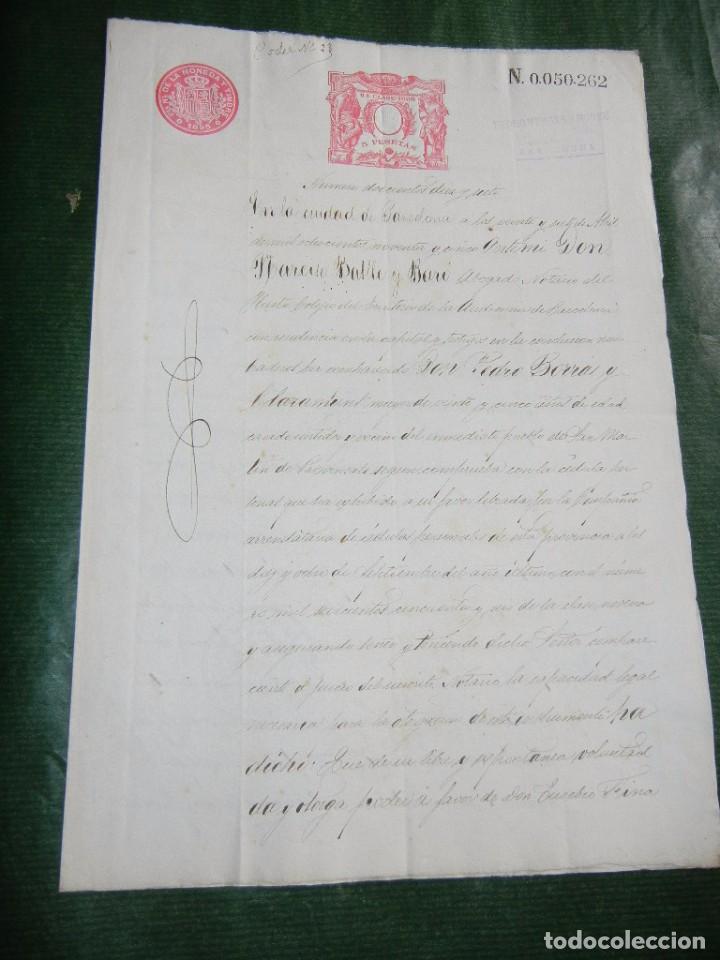 Poder Nº 23
FAB. NAL. DE LA MONEDA Y TIMBRE
1895
N. 0.050.262
5 PESETAS
Número doscientos diez y siete
En la ciudad de Barcelona a los veinte y seis de Abril
de mil ochocientos noventa y cinco. Ante mi Don
y Bori Abogado Notario del
Ilustre Colegio del territorio de la Audiencia de Barcelona
con residencia en la capital y testigos en la conclusion nom
braderos ha comparecido Don Pedro Borras y
Claramunt mayor de veinte y cinco años de edad
casado y vecino del inmediato pueblo de San Mar
tin de Provensals segun comprueba con la cédula per
sonal que ha exhibido a su favor librada por la Compañia
arrendataria de cédulas personales de esta provincia a los
diez y ocho de Setiembre del año último, con el núme
ro mil seiscientos cincuenta y seis de la clase novena
y asegurando tener y teniendo dicho Señor compare
ciente a juicio del suscrito Notario la capacidad legal
necesaria para la otorgacion de este instrumento ha
dicho: Que de su libre y espontanea voluntad
da y otorga poder á favor de Don Eusebio Fina
todocoleccion.net